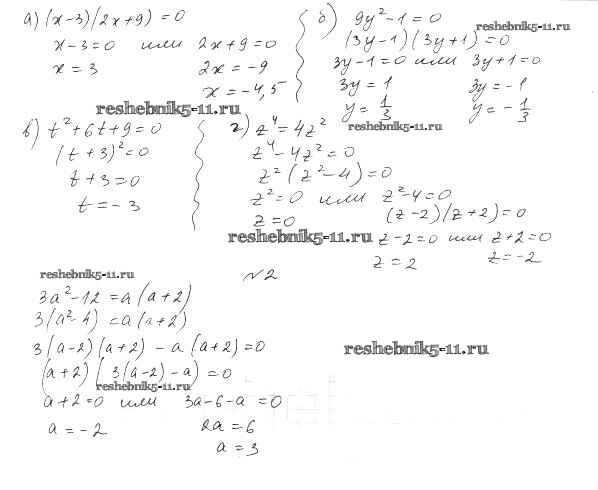 а) (x-3)(2x+9)=0
x-3=0 или 2x+9=0
x=3 2x=-9
x=-4,5
reshebnik5-11.ru
б) 9y²-1=0
reshebnik5-11.ru
(3y-1)(3y+1)=0
3y-1=0 или 3y+1=0
3y=1 3y=-1
y=1/3 y=-1/3
reshebnik5-11.ru
в) t²+6t+9=0
(t+3)²=0
t+3=0
t=-3
г) z⁴=4z²
z⁴-4z²=0
z²(z²-4)=0
z²=0 или z²-4=0
z=0 (z-2)(z+2)=0
reshebnik5-11.ru
z-2=0 или z+2=0
z=2 z=-2
reshebnik5-11.ru
№2
3a²-12=a(a+2)
3(a²-4)=a(a+2)
3(a-2)(a+2)-a(a+2)=0
reshebnik5-11.ru
(a+2)(3(a-2)-a)=0
reshebnik5-11.ru
a+2=0 или 3a-6-a=0
a=-2 2a=6
a=3